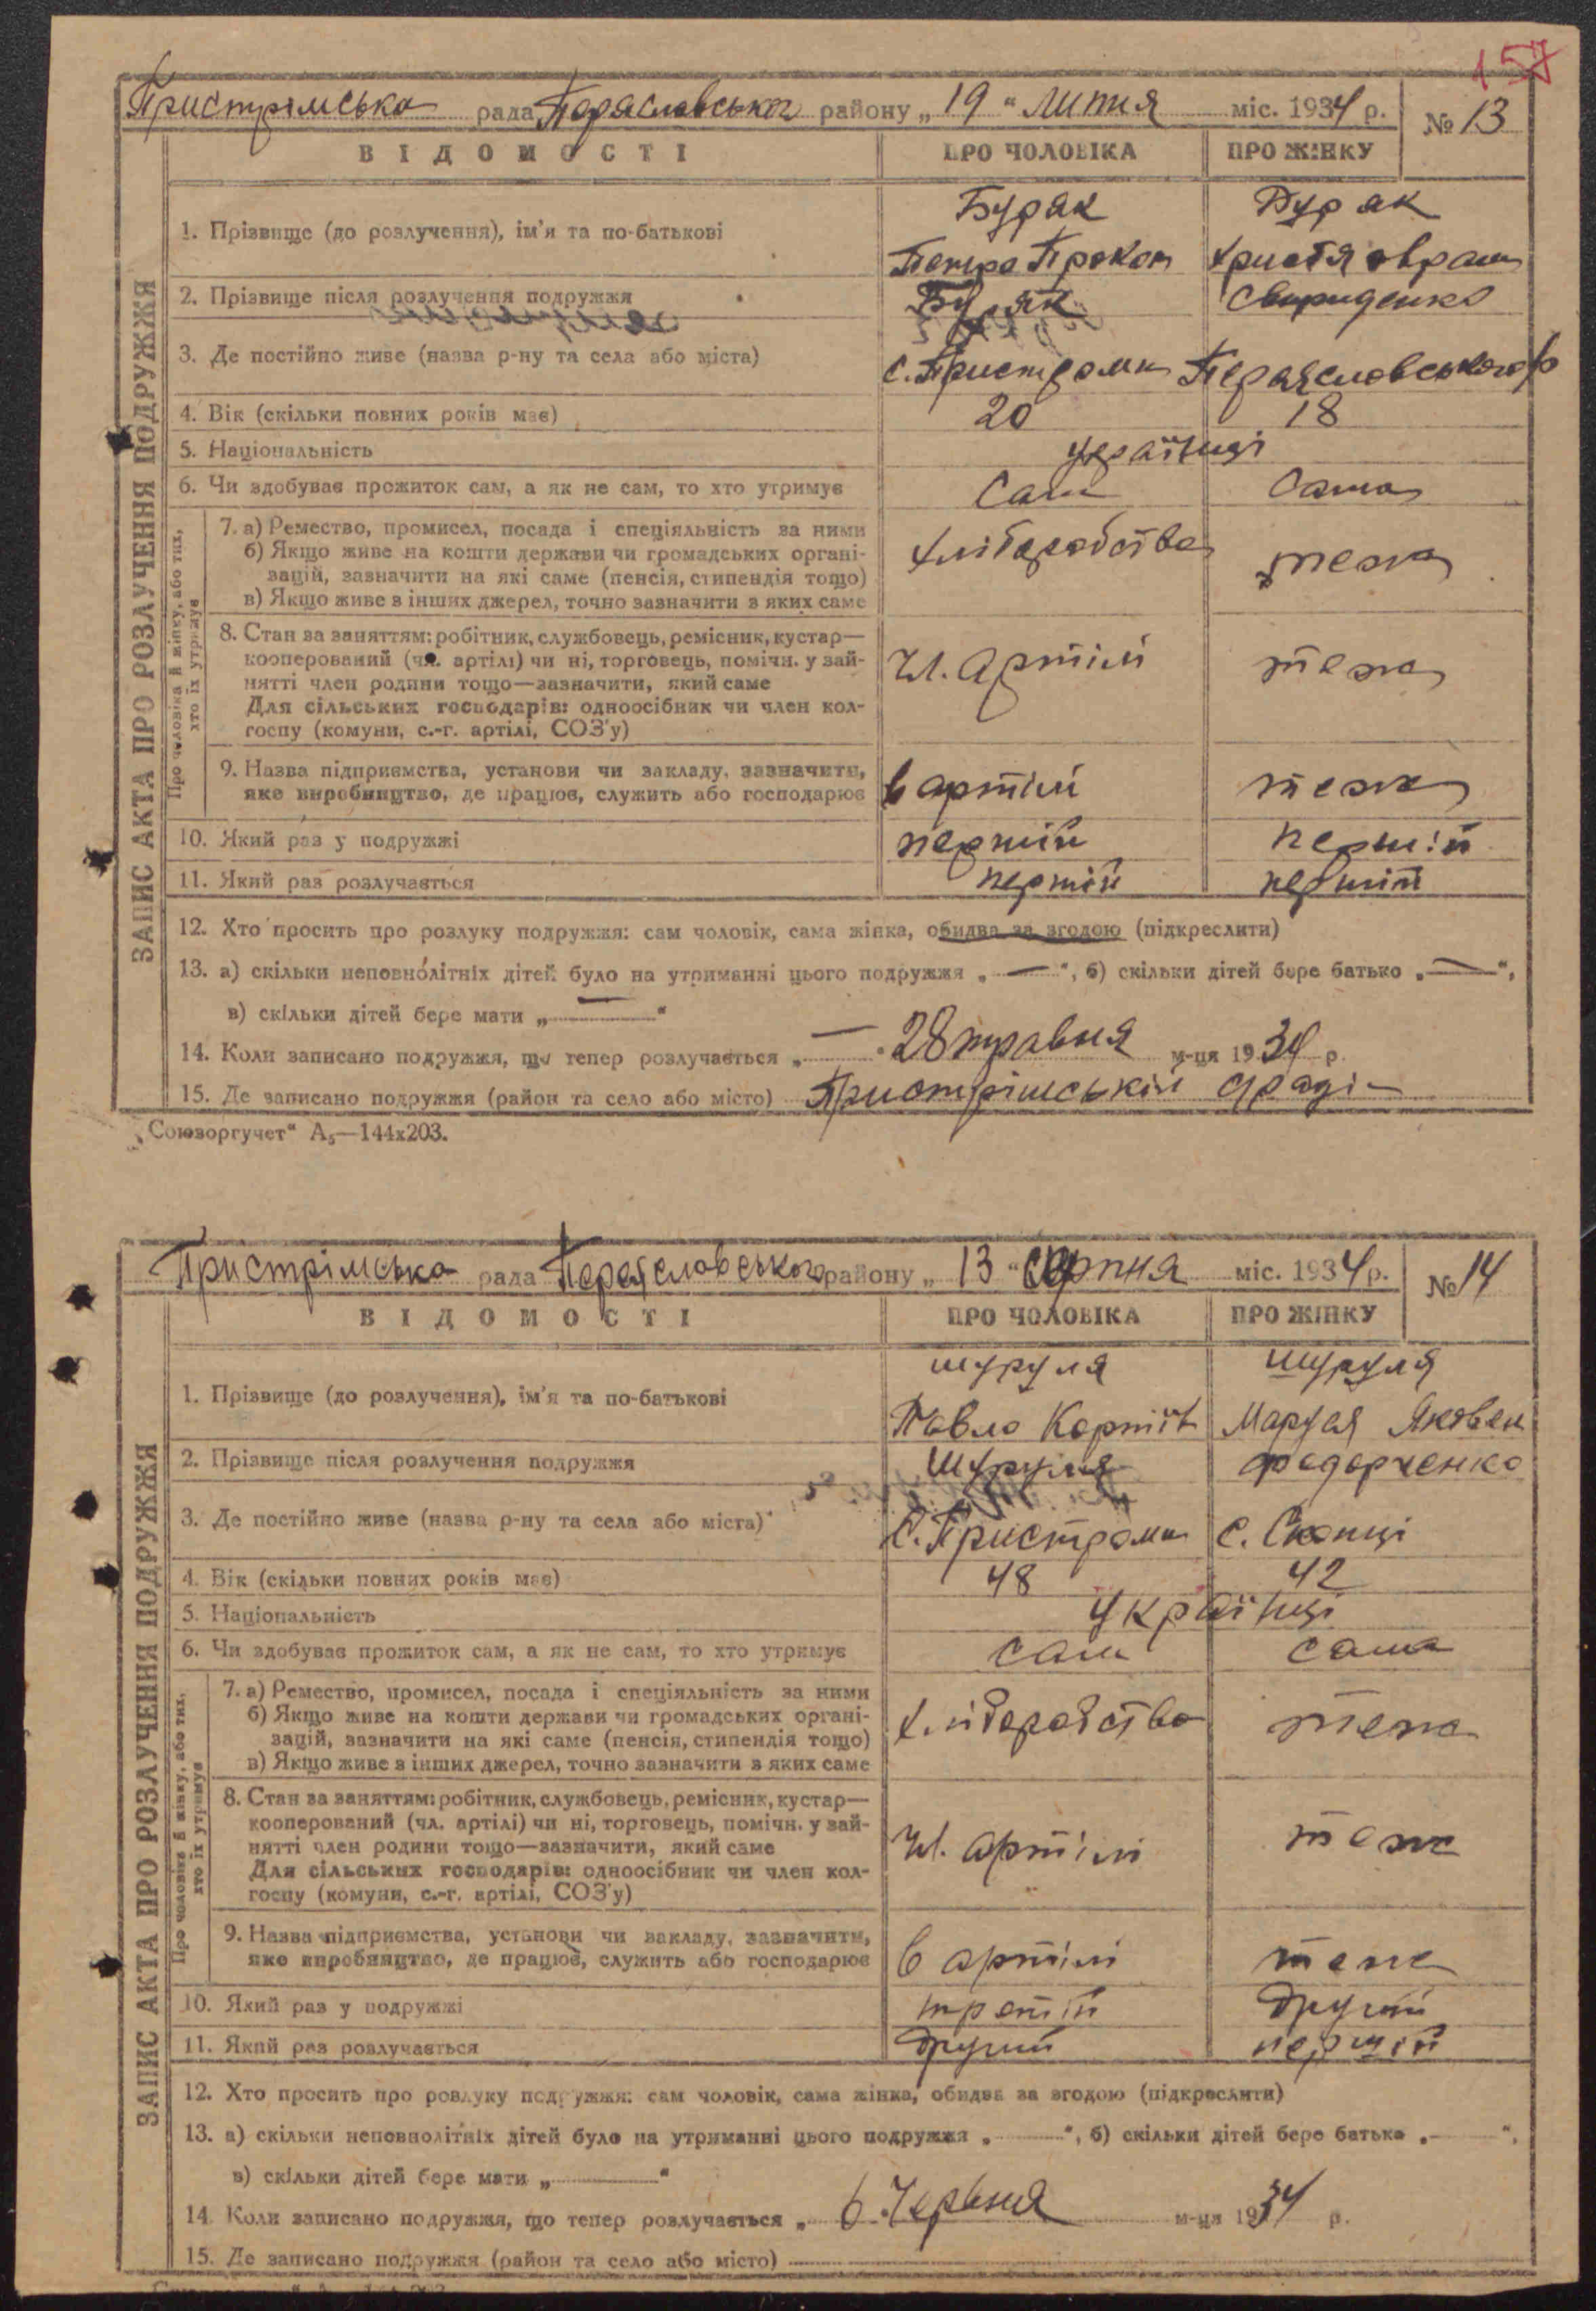 157
Пристрімська рада Переяславського району „ 19 “ липня міс. 1934 р. № 13
ВІДОМОСТІ ПРО ЧОЛОВІКА ПРО ЖІНКУ
Буряк Буряк
1. Прізвище (до розлучення), ім'я та по-батькові
Петро Прокоп Христя
2. Прізвище після розлучення подружжя Буряк Свириденко
3. Де постійно живе (назва р-ну та села або міста)
с. Пристроми Переяславського р
4. Вік (скільки повних років має) 20 18
5. Національність українці
6. Чи здобуває прожиток сам, а як не сам, то хто утримує сам сама
ЗАПИС АКТА ПРО РОЗЛУЧЕННЯ ПОДРУЖЖЯ
Про чоловіка й жінку, або тих,
хто їх утримує
7. а) Ремество, промисел, посада і спеціяльність за ними
б) Якщо живе на кошти держави чи громадських органі-
зацій, зазначити на які саме (пенсія, стипендія тощо)
в) Якщо живе з інших джерел, точно зазначити з яких саме
хліборобство теж
8. Стан за заняттям: робітник, службовець, ремісник, кустар—
кооперований (чл. артілі) чи ні, торговець, помічн. у зай-
нятті член родини тощо—зазначити, який саме
Для сільських господарів: одноосібник чи член кол-
госпу (комуни, с.-г. артілі, СОЗ'у)
чл. артілі теж
9. Назва підприємства, установи чи закладу, зазначити,
яке виробництво, де працює, служить або господарює
в артілі теж
10. Який раз у подружжі перший перший
11. Який раз розлучається перший перший
12. Хто просить про розлуку подружжя: сам чоловік, сама жінка, обидва за згодою (підкреслити)
13. а) скільки неповнолітніх дітей було на утриманні цього подружжя „ — “, б) скільки дітей бере батько „ — “,
в) скільки дітей бере мати „ — “
14. Коли записано подружжя, що тепер розлучається „ — “ 28 травня м-ця 1934 р.
15. Де записано подружжя (район та село або місто) Пристрімській с/раді
„Союзоргучет“ А₅—144х203.
Пристрімська рада Переяславського району „ 13 “ серпня міс. 1934 р. № 14
ВІДОМОСТІ ПРО ЧОЛОВІКА ПРО ЖІНКУ
шуруля шуруля
1. Прізвище (до розлучення), ім'я та по-батькові
Павло Маруся Яковен
2. Прізвище після розлучення подружжя Шуруля Федорченко
3. Де постійно живе (назва р-ну та села або міста)
С. Пристроми с. Скопці
4. Вік (скільки повних років має) 48 42
5. Національність українці
6. Чи здобуває прожиток сам, а як не сам, то хто утримує сам сама
ЗАПИС АКТА ПРО РОЗЛУЧЕННЯ ПОДРУЖЖЯ
Про чоловіка й жінку, або тих,
хто їх утримує
7. а) Ремество, промисел, посада і спеціяльність за ними
б) Якщо живе на кошти держави чи громадських органі-
зацій, зазначити на які саме (пенсія, стипендія тощо)
в) Якщо живе з інших джерел, точно зазначити з яких саме
хліборобство теж
8. Стан за заняттям: робітник, службовець, ремісник, кустар—
кооперований (чл. артілі) чи ні, торговець, помічн. у зай-
нятті член родини тощо—зазначити, який саме
Для сільських господарів: одноосібник чи член кол-
госпу (комуни, с.-г. артілі, СОЗ'у)
чл. артілі теж
9. Назва підприємства, установи чи закладу, зазначити,
яке виробництво, де працює, служить або господарює
в артілі теж
10. Який раз у подружжі третій другий
11. Який раз розлучається другий перший
12. Хто просить про розлуку подружжя: сам чоловік, сама жінка, обидва за згодою (підкреслити)
13. а) скільки неповнолітніх дітей було на утриманні цього подружжя „ “, б) скільки дітей бере батько „ “,
в) скільки дітей бере мати „ “
14. Коли записано подружжя, що тепер розлучається „ 6 “ Червня м-ця 1934 р.
15. Де записано подружжя (район та село або місто)